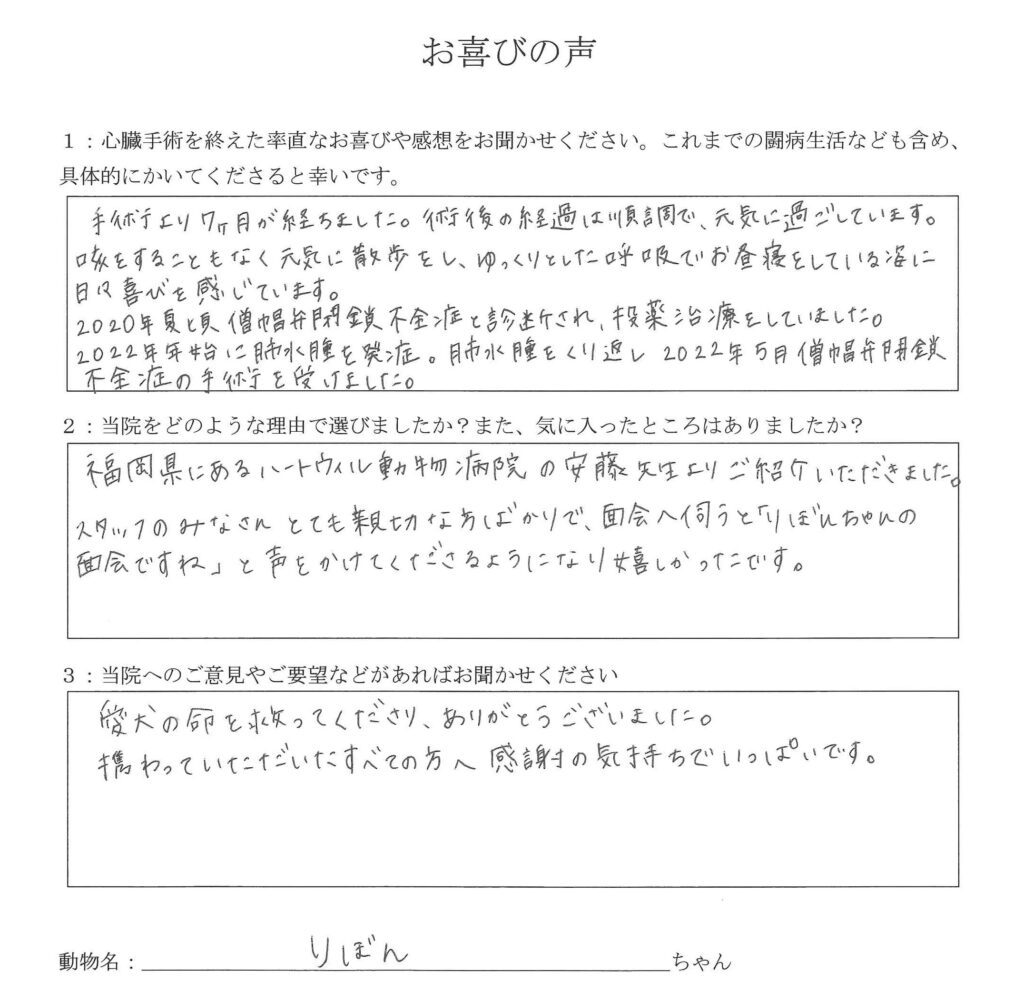 お喜びの声
１：心臓手術を終えた率直なお喜びや感想をお聞かせください。これまでの闘病生活なども含め、
具体的にかいてくださると幸いです。
手術より7ヶ月が経ちました。術後の経過は順調で、元気に過ごしています。
咳をすることもなく元気に散歩をし、ゆっくりとした呼吸でお昼寝をしている姿に
日々喜びを感じています。
2020年夏頃僧帽弁閉鎖不全症と診断され、投薬治療をしていました。
2022年年始に肺水腫を発症。肺水腫をくり返し2022年5月僧帽弁閉鎖
不全症の手術を受けました。
２：当院をどのような理由で選びましたか？また、気に入ったところはありましたか？
福岡県にあるハートウィル動物病院の安藤先生よりご紹介いただきました。
スタッフのみなさんとても親切な方ばかりで、面会へ伺うと「りぼんちゃんの
面会ですね」と声をかけてくださるようになり嬉しかったです。
３：当院へのご意見やご要望などがあればお聞かせください
愛犬の命を救ってくださり、ありがとうございました。
携わっていただいたすべての方へ感謝の気持ちでいっぱいです。
動物名：りぼんちゃん